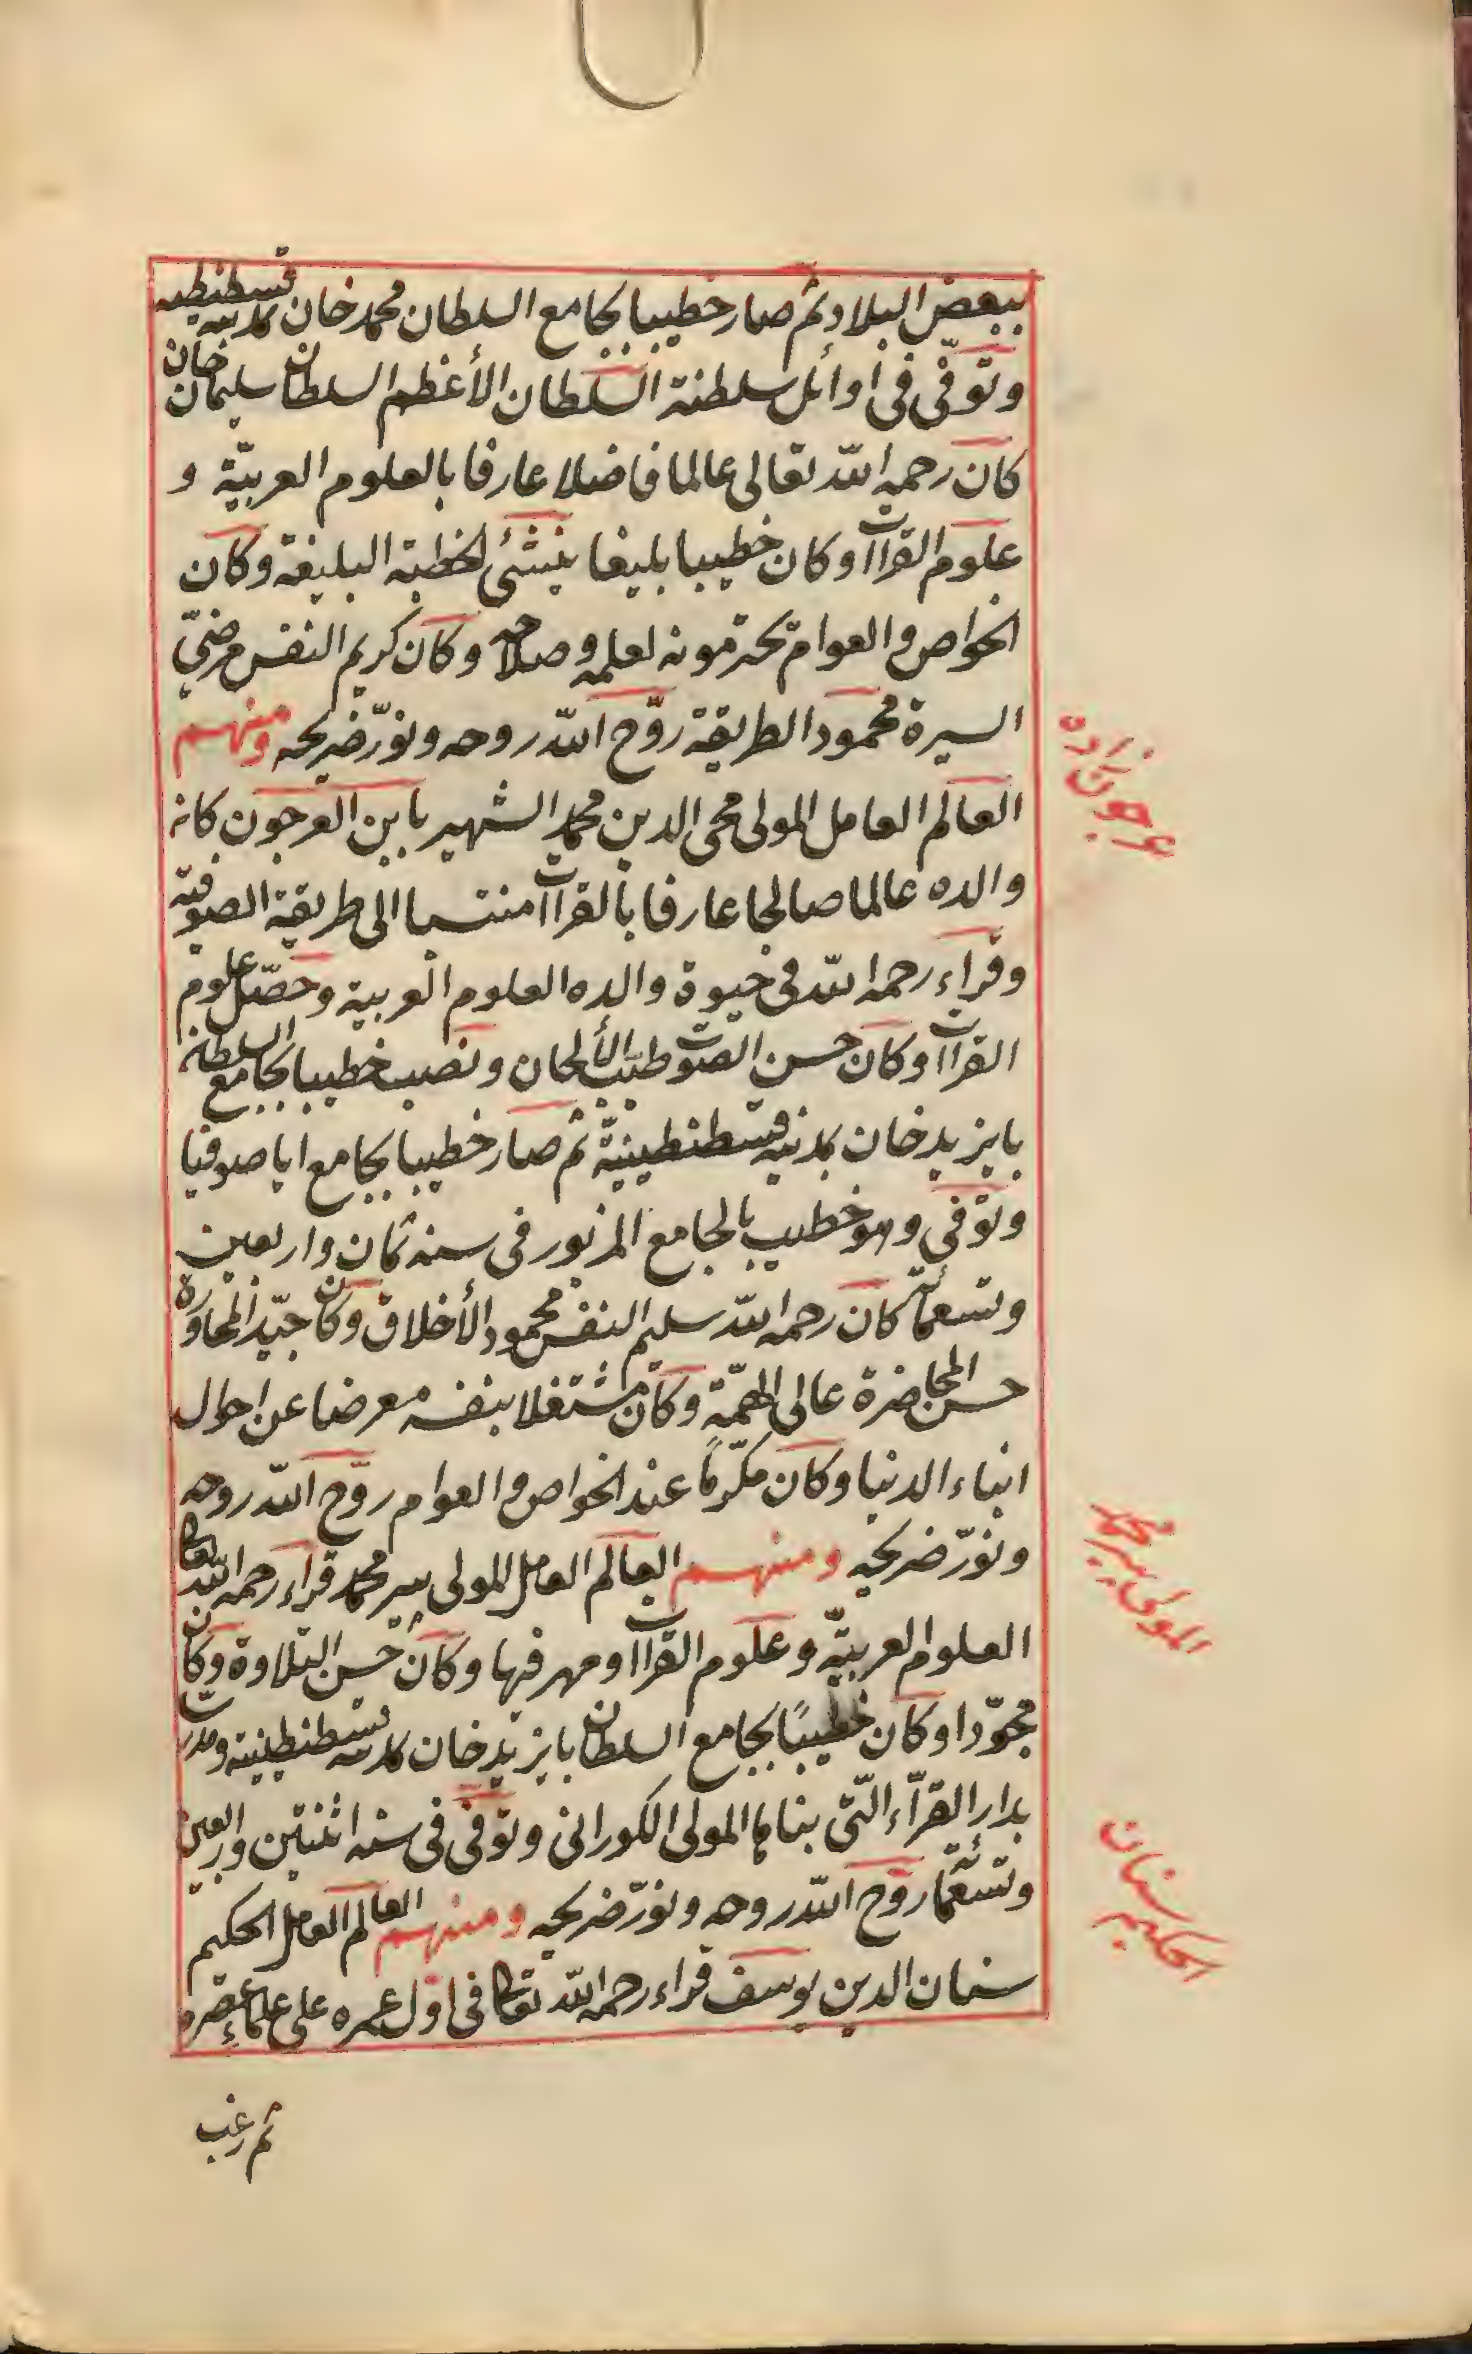 ببعض البلاد ثم صار خطيبا بجامع السلطان محمد خان بمدينة قسطنطينيه
وتوفّى فى اوائل سلطنة السلطان الأعظم السلطان سليمان خان
كان رحمه اللّه تعالى عالما فاضلا عارفا بالعلوم العربيّة و
علوم القراآت وكان خطيبا بليغا ينشئ الخطبة البليغة وكان
الخواص والعوام يحترمونه لعلمه وصلاحه وكان كريم النفس مرضىّ
السيرة محمود الطريقة روّح اللّه روحه ونوّر ضريحه ومنهم
العالم العامل المولى محى الدين محمد الشهير بابن العرجون كان
والده عالما صالحا عارفا بالقراآت منتسبا الى طريقة الصوفيّة
وقراء رحمه اللّه فى حيوة والده العلوم العربية وحصّل علوم
القراآت وكان حسن الصّوت طيّب الألحان ونصب خطيبا بجامع السلطان
بايزيد خان بمدينة قسطنطينيّة ثم صار خطيبا بجامع ايا صوفيا
وتوفى وهو خطيب بالجامع المزبور فى سنه ثمان واربعين
وتسعمائة كان رحمه اللّه سليم النفس محمود الأخلاق وكان جيّد المحاورة
حسن المحاضرة عالى الهمّة وكان مشتغلا بنفسه معرضا عن احوال
ابناء الدنيا وكان مكرّمًا عند الخواص والعوام روّح اللّه روحه
ونوّر ضريحه ومنهم العالم العامل المولى پير محمد قراء رحمه اللّه تعالى
العلوم العربيّة وعلوم القراآت ومهر فيها وكان حسن التلاوة وكان
مجوّدا وكان خطيبًا بجامع السلطان بايزيد خان بمدينة قسطنطينية ومدرّسا
بدار القرّاء التّى بناها المولى الكورانى وتوفّى فى سنه اثنتين واربعين
وتسعمائة روّح اللّه روحه ونوّر ضريحه ومنهم العالم العامل الحكيم
سنان الدين يوسف قراء رحمه اللّه تعالى فى اوّل عمره على علماء عصره
ثم رغب
عرجون زاده
المولى پير محمد
الحكيم سنان